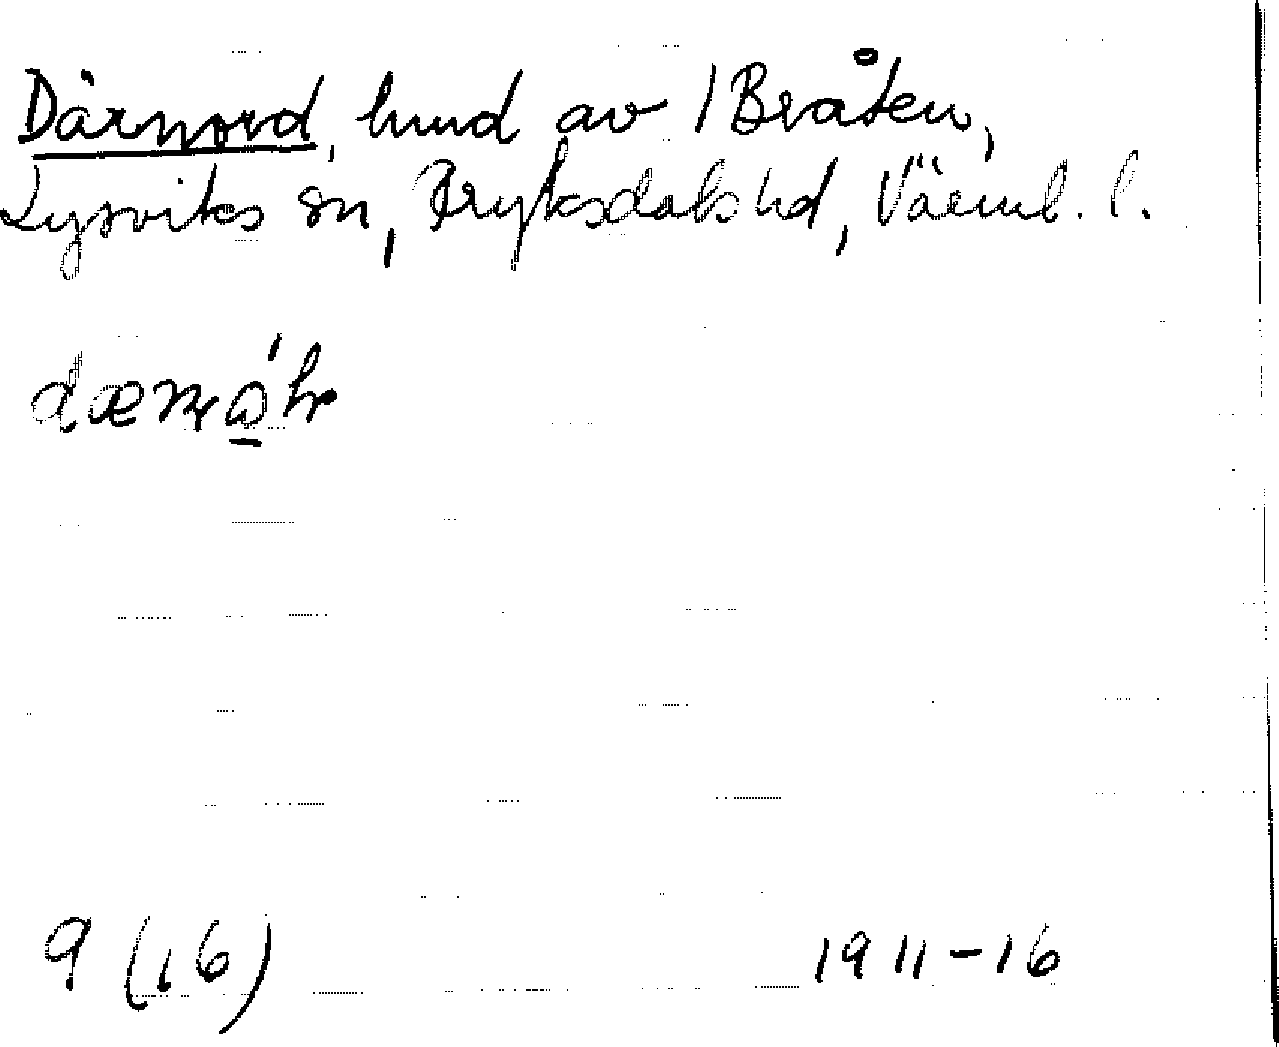 Därnord, lund av 1 Bråten,
Lysviks sn, Fryksdals hd, Värml. l.
9 (16) 1911-16